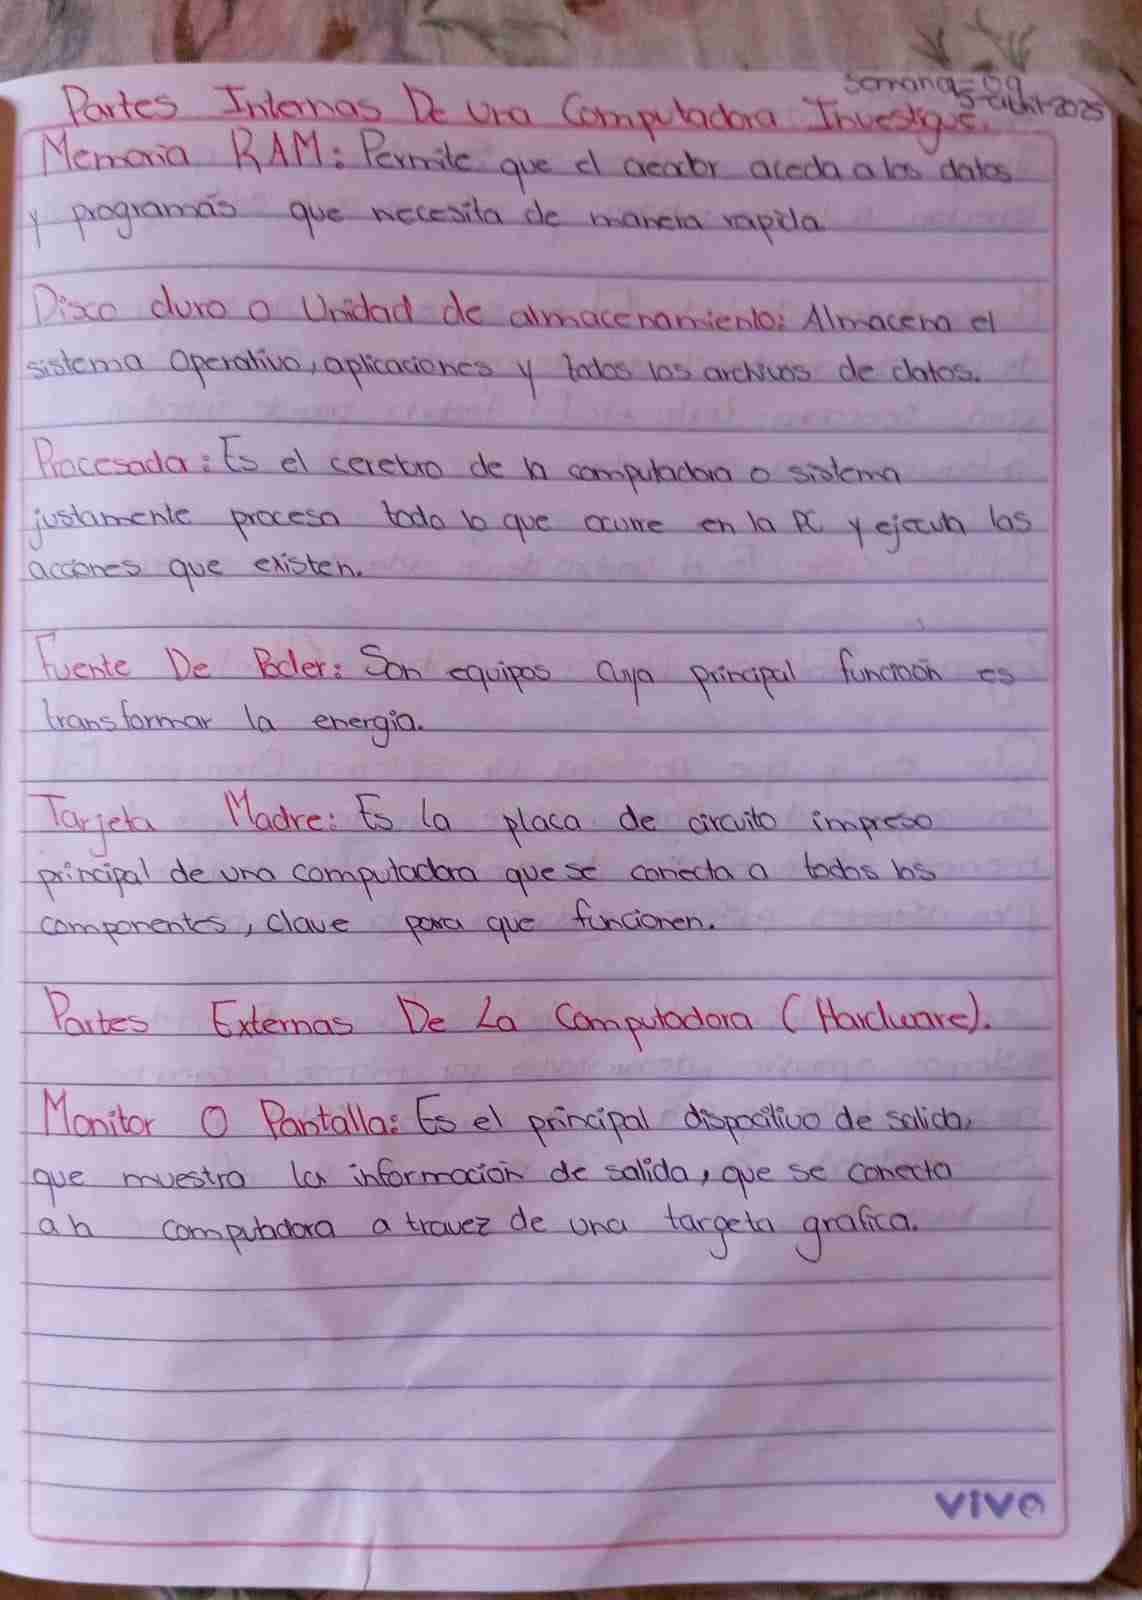 Semana-09
Partes Internas De una Computadora Investigue.
Memoria RAM: Permite que el aceder aceda a los datos
y programás que necesita de manera rapida
Disco duro o Unidad de almacenamiento: Almacena el
sistema Operativo, aplicaciones y todos los archivos de datos.
Procesada: Es el cerebro de la computadora o sistema
justamente procesa todo lo que ocurre en la PC y ejecuta las
acciones que existen.
Fuente De Poder: Son equipos cuya principal función es
transformar la energia.
Tarjeta Madre: Es la placa de circuito impreso
principal de una computadora que se conecta a todos los
componentes, clave para que funcionen.
Partes Externas De La Computadora (Hardware).
Monitor O Pantalla: Es el principal dispocitivo de salida,
que muestra la información de salida, que se conecta
a la computadora a travez de una targeta grafica.
vivo